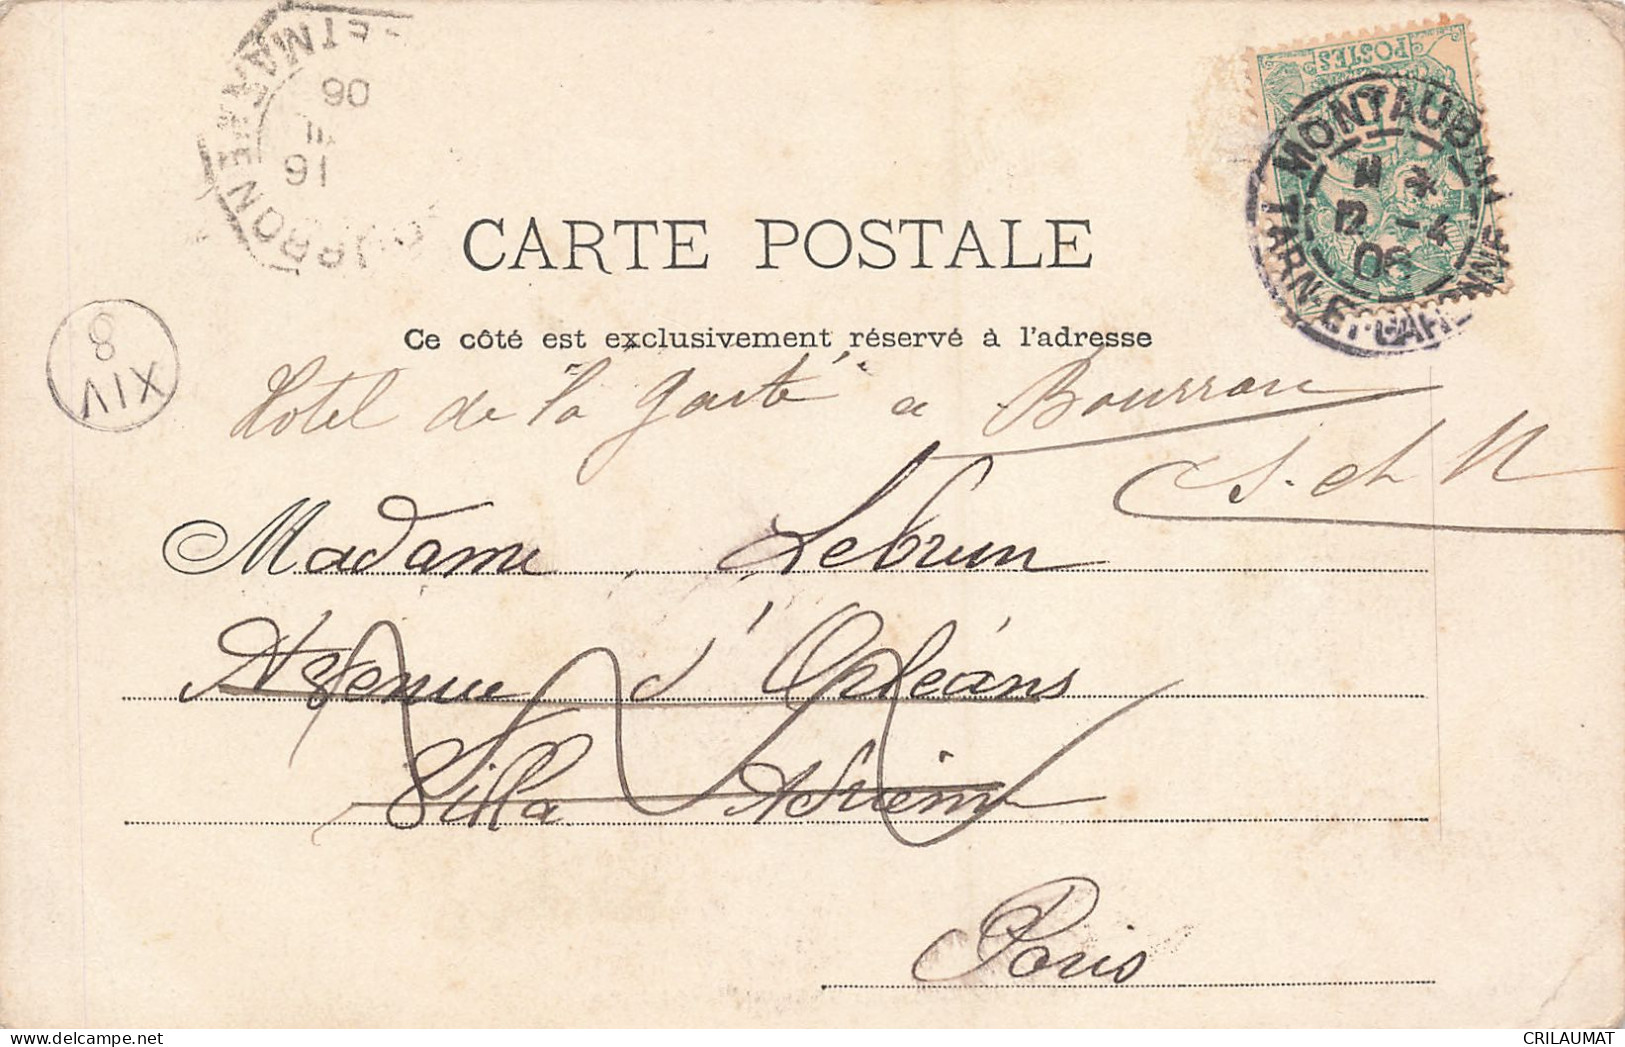 POSTES
MONTAUBAN
12 -4
06
TARN-ET-GARONNE
BOURRON
16
06
XIV
8
CARTE POSTALE
Ce côté est exclusivement réservé à l'adresse
Hotel de la gaité a Bourron
S. et M
Madame Lebrun
Avenue d'Orléans
Villa
Paris
CRILAUMAT